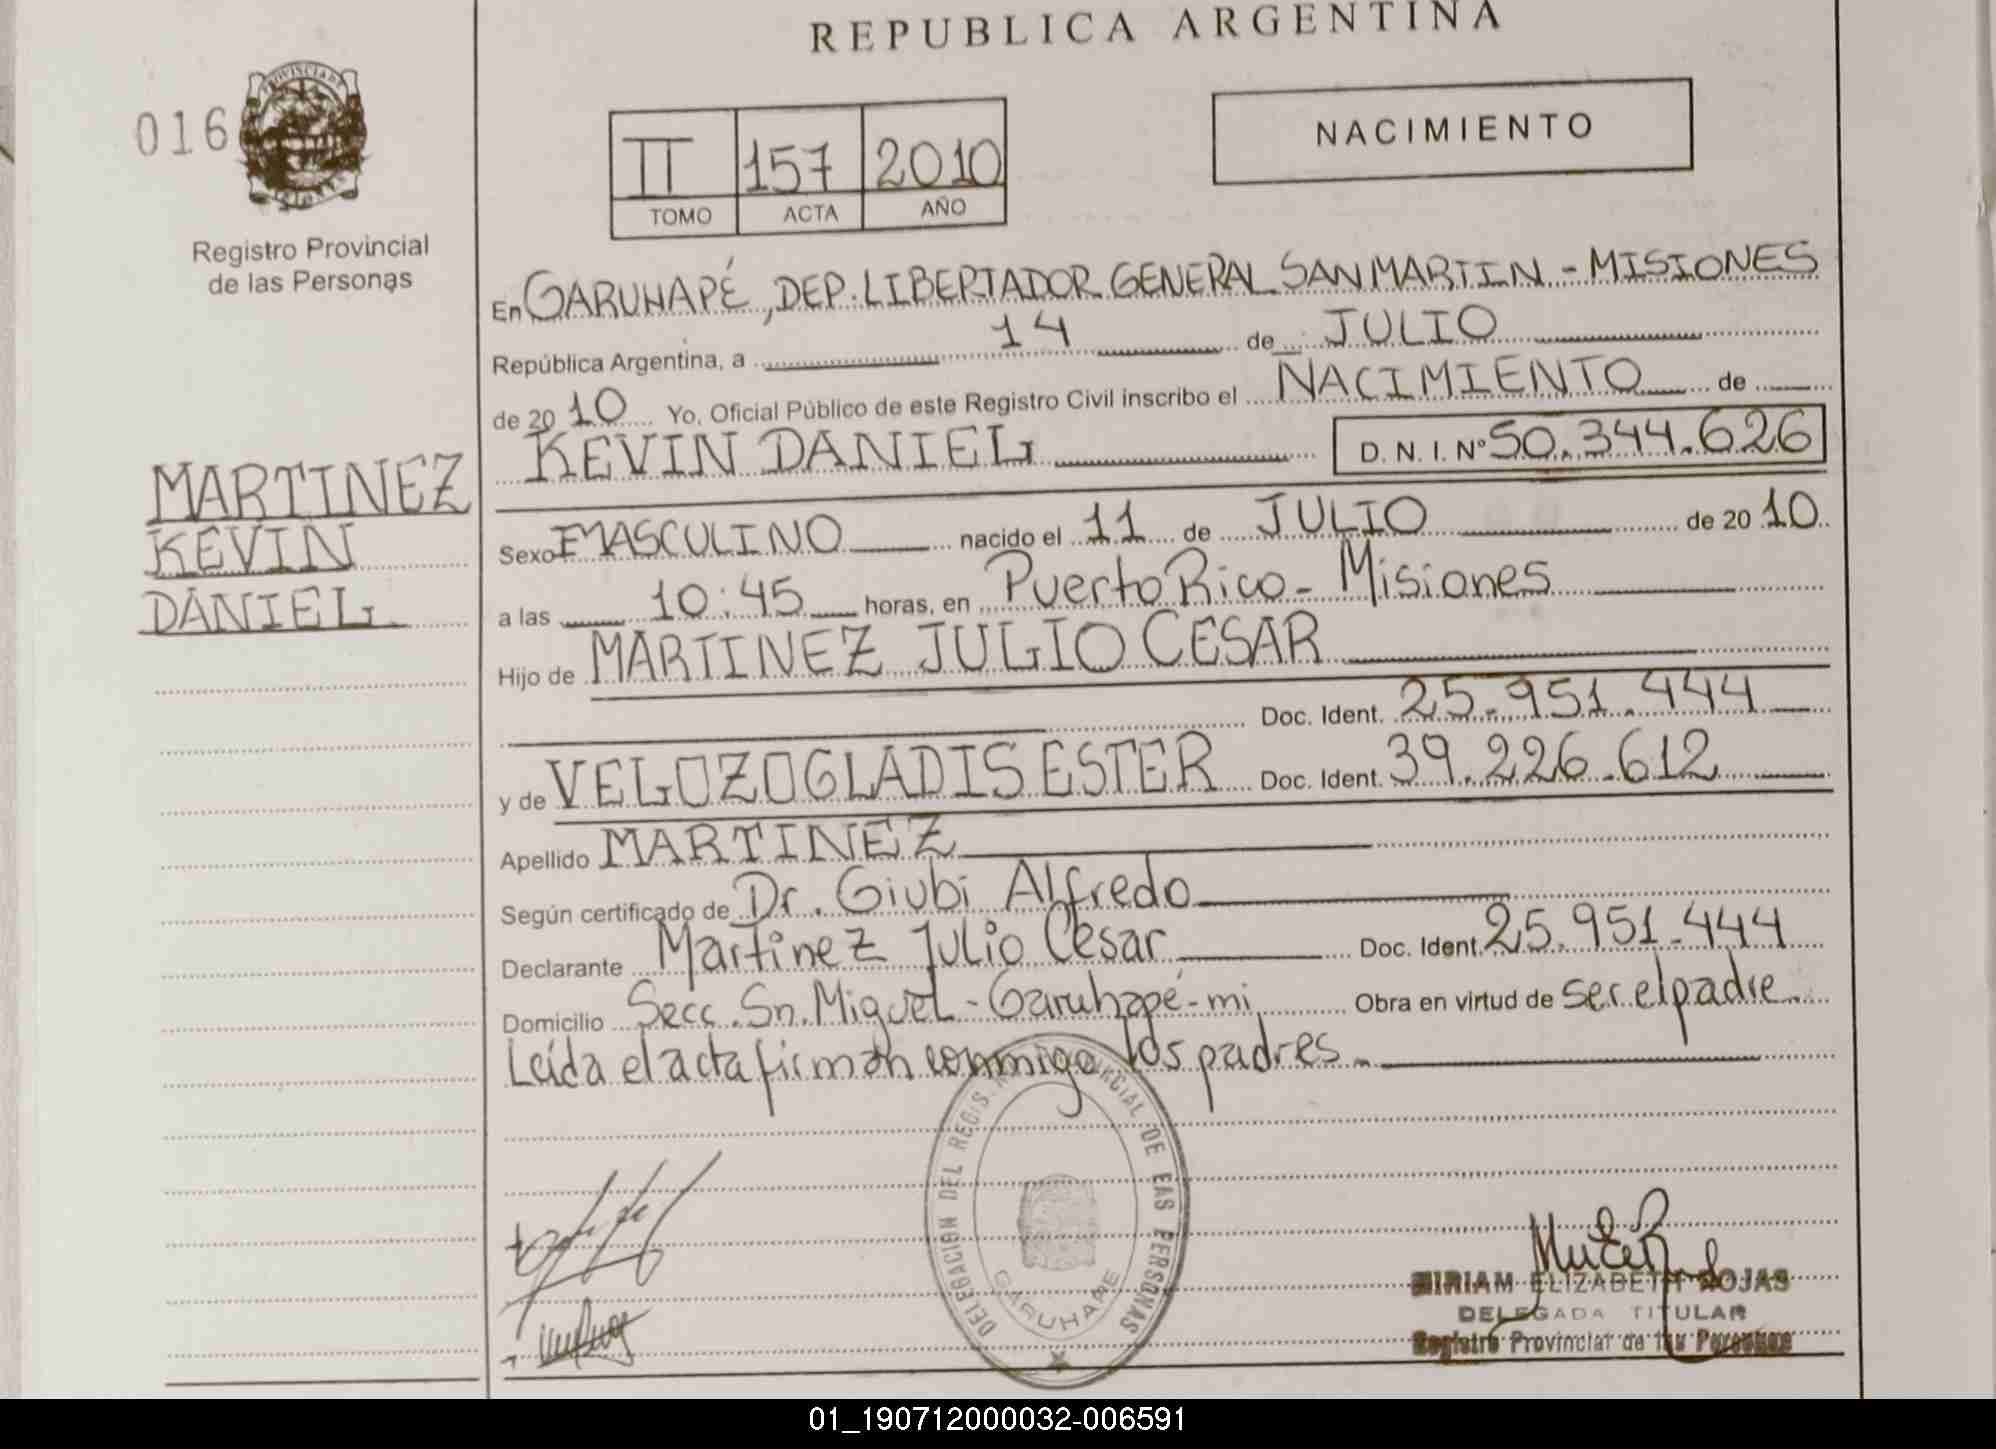 REPUBLICA ARGENTINA
016
PROVINCIA DE
MISIONES
Registro Provincial
de las Personas
II 157 2010
TOMO ACTA AÑO
NACIMIENTO
En GARUHAPÉ, DEP. LIBERTADOR GENERAL SAN MARTIN - MISIONES
República Argentina, a 14 de JULIO
de 2010 Yo, Oficial Público de este Registro Civil inscribo el NACIMIENTO de
KEVIN DANIEL D. N. I. Nº 50.344.626
MARTINEZ
KEVIN
DANIEL
Sexo MASCULINO nacido el 11 de JULIO de 2010
a las 10:45 horas, en Puerto Rico - Misiones
Hijo de MARTINEZ JULIO CESAR
Doc. Ident. 25.951.444
y de VELOZO GLADIS ESTER Doc. Ident. 39.226.612
Apellido MARTINEZ
Según certificado de Dr. Giubi Alfredo
Declarante Martinez Julio Cesar Doc. Ident. 25.951.444
Domicilio Secc. Sn. Miguel - Garuhapé - mi Obra en virtud de ser el padre
Leída el acta firman conmigo los padres.
DELEGACION DEL REGIS. PROVINCIAL DE LAS PERSONAS
GARUHAPE
MIRIAM ELIZABETH ROJAS
DELEGADA TITULAR
Registro Provincial de las Personas
01_190712000032-006591